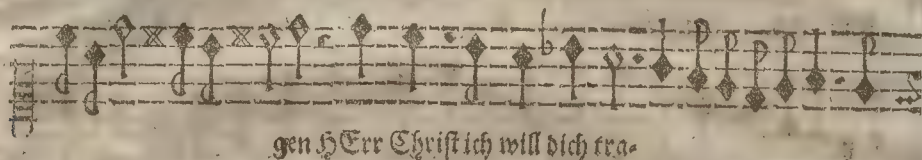 gen HErr Chriſt ich will dich tra-